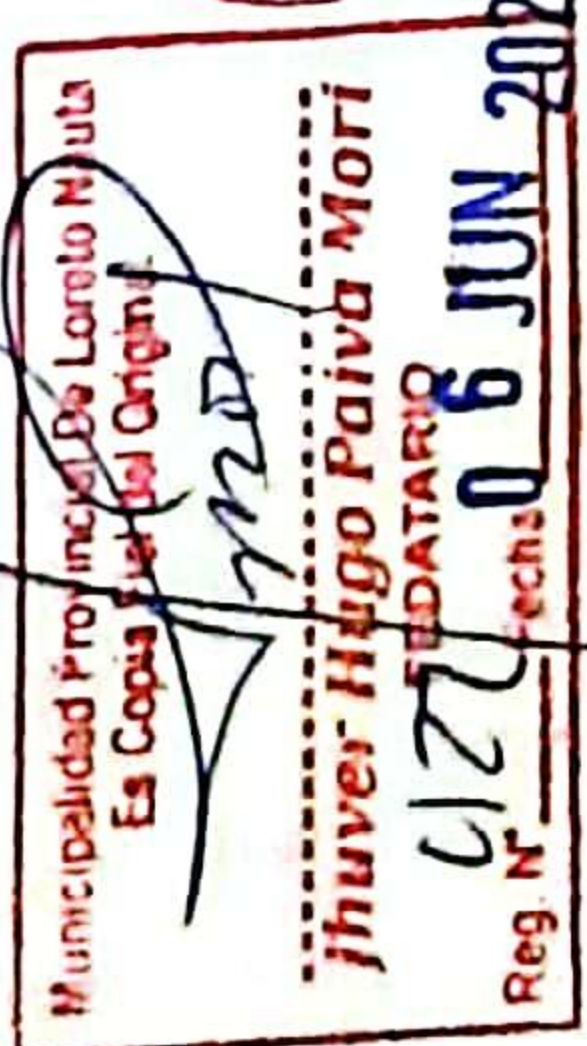 Municipalidad Provincial De Loreto Nauta
Es Copia Fiel Del Original
Jhuver Hugo Paiva Mori
FEDATARIO
Reg. N° Fecha 06 JUN 202